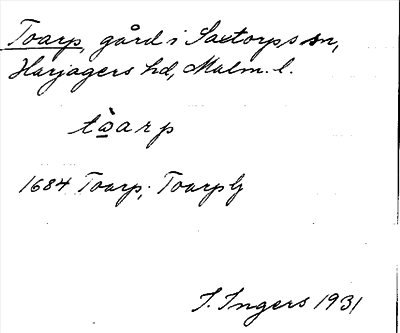 Toarp, gård i Saxtorps sn,
Harjagers hd, Malm. l.
tòarp
1684 Toarp; Toarp G
I. Ingers 1931